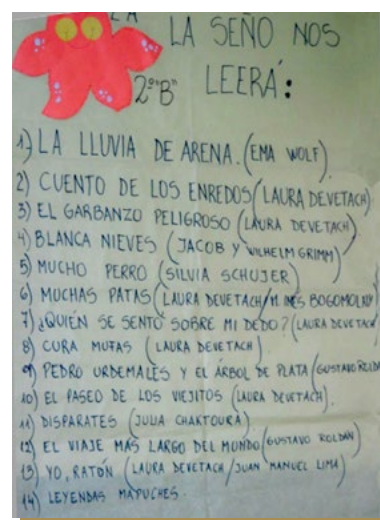 LA SEÑO NOS
2º "B" LEERÁ:
1) LA LLUVIA DE ARENA. (EMA WOLF)
2) CUENTO DE LOS ENREDOS (LAURA DEVETACH)
3) EL GARBANZO PELIGROSO (LAURA DEVETACH)
4) BLANCA NIEVES (JACOB Y WILHELM GRIMM)
5) MUCHO PERRO (SILVIA SCHUJER)
6) MUCHAS PATAS (LAURA DEVETACH/M. INÉS BOGOMOLNY)
7) ¿QUIÉN SE SENTÓ SOBRE MI DEDO? (LAURA DEVETACH
8) CURA MUFAS (LAURA DEVETACH)
9) PEDRO URDEMALES Y EL ÁRBOL DE PLATA (GUSTAVO ROLDÁN
10) EL PASEO DE LOS VIEJITOS (LAURA DEVETACH).
11) DISPARATES (JULIA CHAKTOURA)
12) EL VIAJE MÁS LARGO DEL MUNDO (GUSTAVO ROLDÁN)
13) YO, RATÓN (LAURA DEVETACH / JUAN MANUEL LIMA)
14) LEYENDAS MAPUCHES.